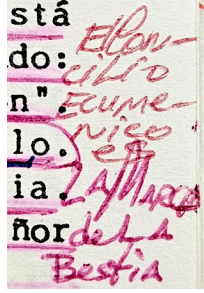 stá
do:
n".
lo.
ia.
ñor
El Con-
cilio
Ecume-
nico
es
la Marca
de la
Bestia